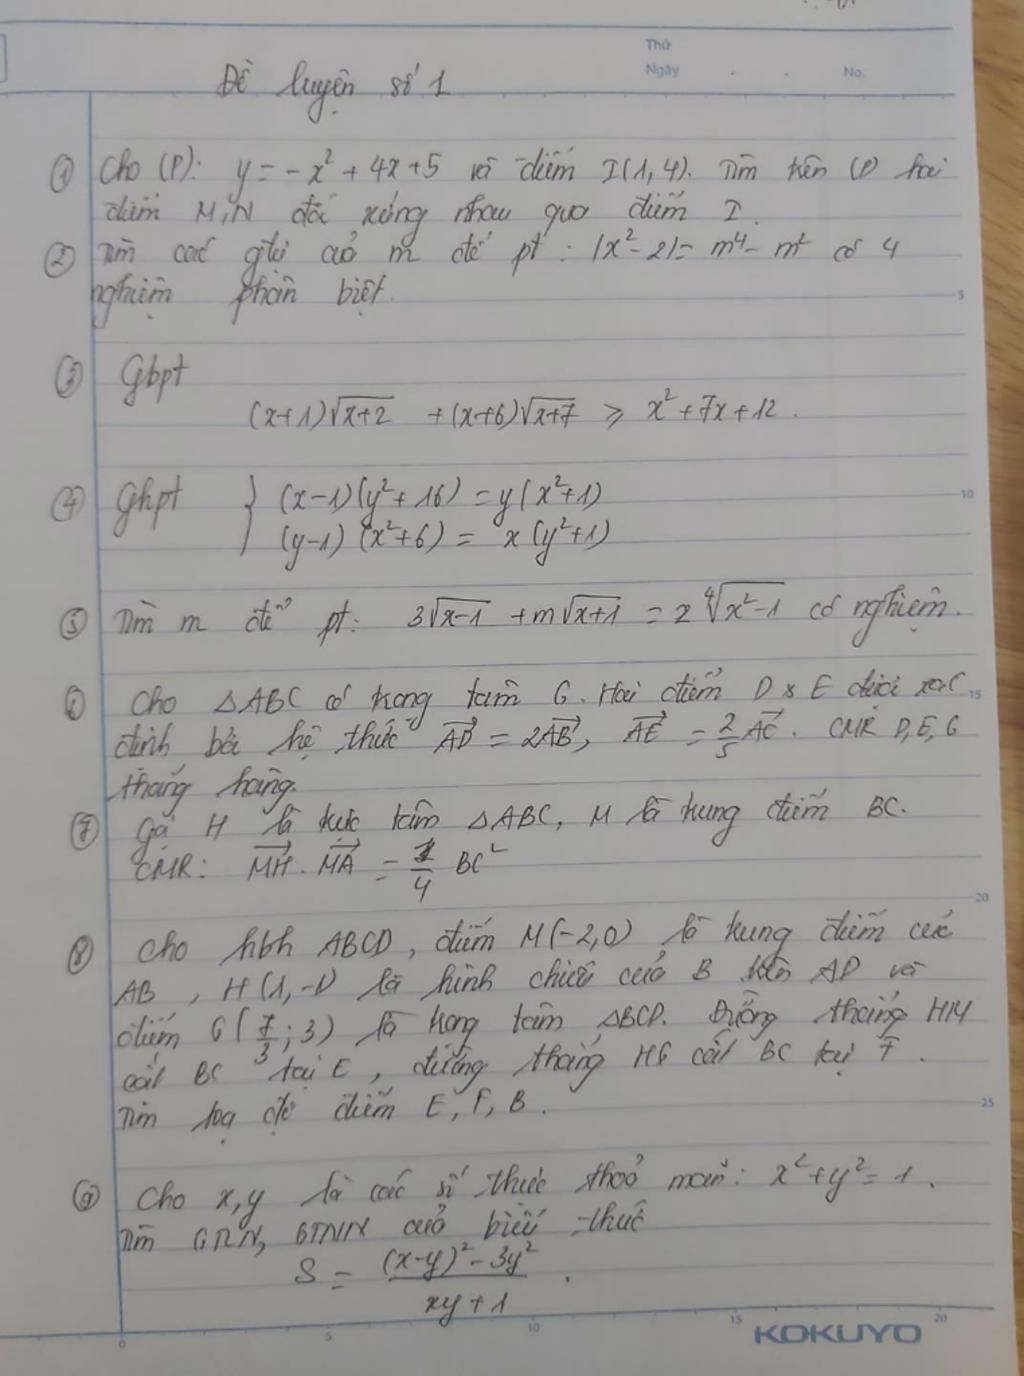 Thứ
Ngày . . No.
Đề luyện số 1
① Cho (P): y = -x² + 4x + 5 và điểm I(1,4). Tìm trên (P) hai
điểm M,N đối xứng nhau qua điểm I.
② Tìm các gtrị của m để pt : |x²-2| = m⁴ - m² có 4
nghiệm phân biệt.
5
③ Gbpt
(x+1)√(x+2) + (x+6)√(x+7) ≥ x² + 7x + 12 .
④ Ghpt } (x-1)(y²+16) = y(x²+1)
10
(y-1)(x²+6) = x(y²+1)
⑤ Tìm m để pt: 3√(x-1) + m√(x+1) = 2 ⁴√(x²-1) có nghiệm.
⑥ Cho △ABC có trọng tâm G. Hai điểm D & E được xác
15
định bởi hệ thức AD⃗ = 2AB⃗, AE⃗ = 2/5 AC⃗ . CMR D,E,G
thẳng hàng.
⑦ Gọi H là trực tâm △ABC, M là trung điểm BC.
CMR: MH⃗ . MA⃗ = 1/4 BC²
20
⑧ Cho hbh ABCD, điểm M(-2,0) là trung điểm của
AB , H(1,-1) là hình chiếu của B trên AD và
điểm G(7/3; 3) là trọng tâm △BCD. Đường thẳng HM
cắt BC tại E, đường thẳng HG cắt BC tại F.
Tìm toạ độ điểm E, F, B.
25
⑨ Cho x,y là các số thực thoả mãn: x² + y² = 1 .
Tìm GTLN, GTNN của biểu thức
S = ((x-y)² - 3y²)/(xy + 1) .
0 5 10 15 20
KOKUYO